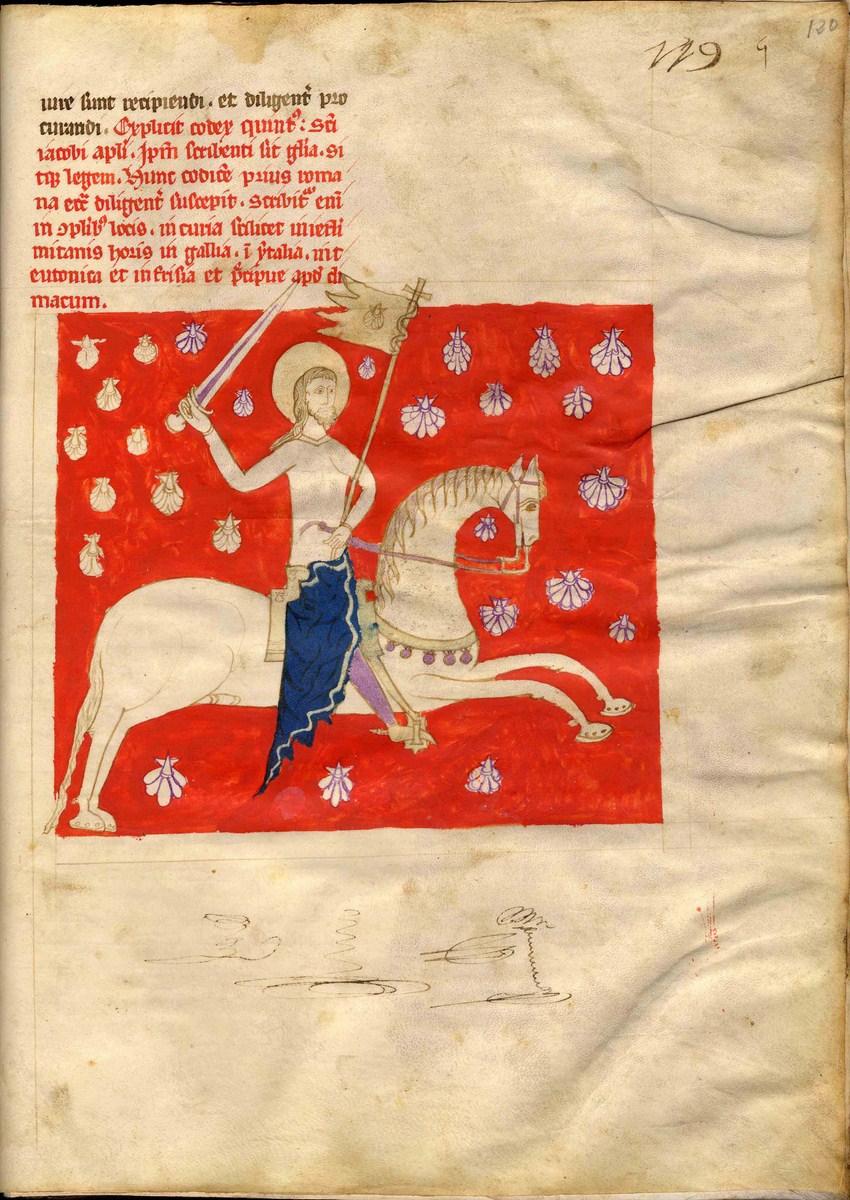 120
119
iure sunt recipiendi. et diligent̃ pro
curandi. Explicit codex quint⁹: Sc̃i
iacobi apl̃i. Ip̃m scribenti sit gl̃ia. si
tq; legem. Hunc codicẽ prius roma
na ecc̃ diligent̃ suscepit. Scribit̃ eni
in ɔplib⁹ locis. in curia scilicet
mitanis horis in gallia. ĩ ytalia. in t
eutonica et in frisia et p̃cipue apd̃
macum.